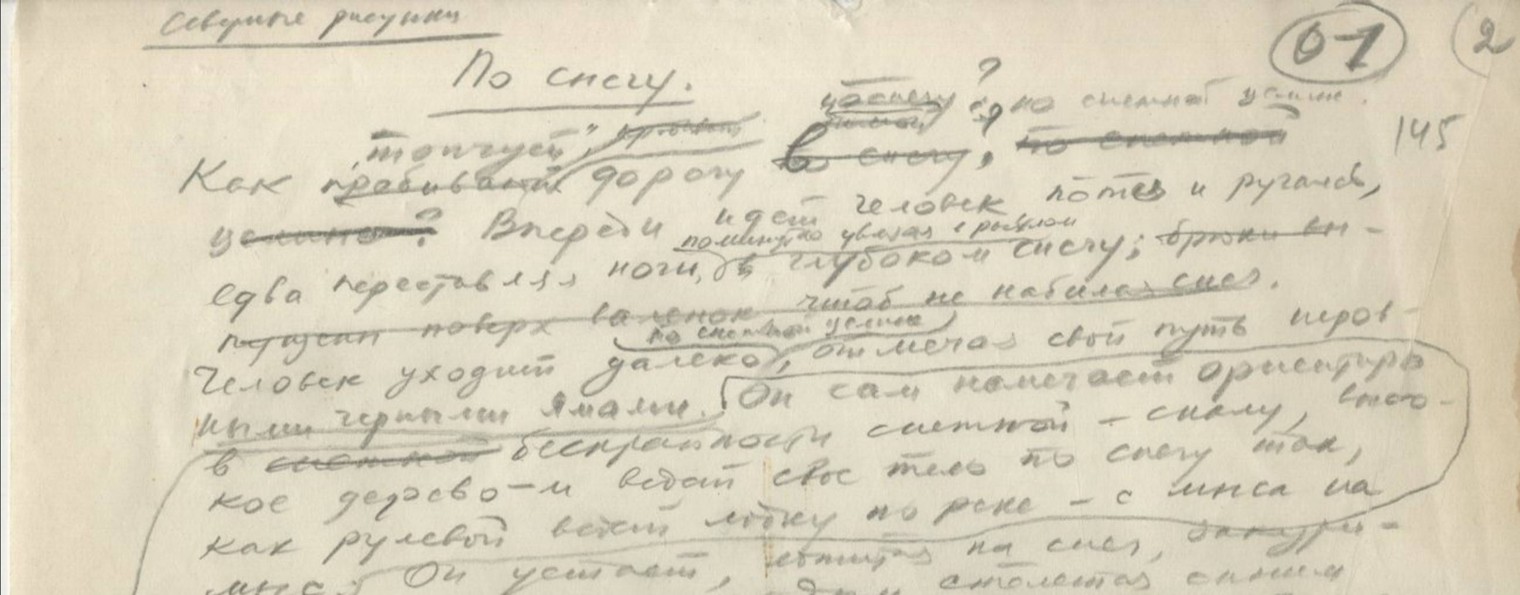 Северные рисунки
01 2
По снегу.
?
по снегу ? по снежной целине.
145
"топчут",
Как пробивают дорогу в снегу, по снежной
целине? Впереди идет человек потея и ругаясь,
поминутно увязая с рыхлом
едва переставляя ноги, в глубоком снегу; брюки вы-
пущены поверх валенок чтоб не набился снег.
по снежной целине
Человек уходит далеко, отмечая свой путь неров-
ными черными ямами. Он сам намечает ориентиры
в снежной бескрайности снежной - скалу, высо-
кое дерево - и ведет свое тело по снегу так,
как рулевой ведет лодку по реке - с мыса на
мыс. Он устает, ложится на снег, закури-